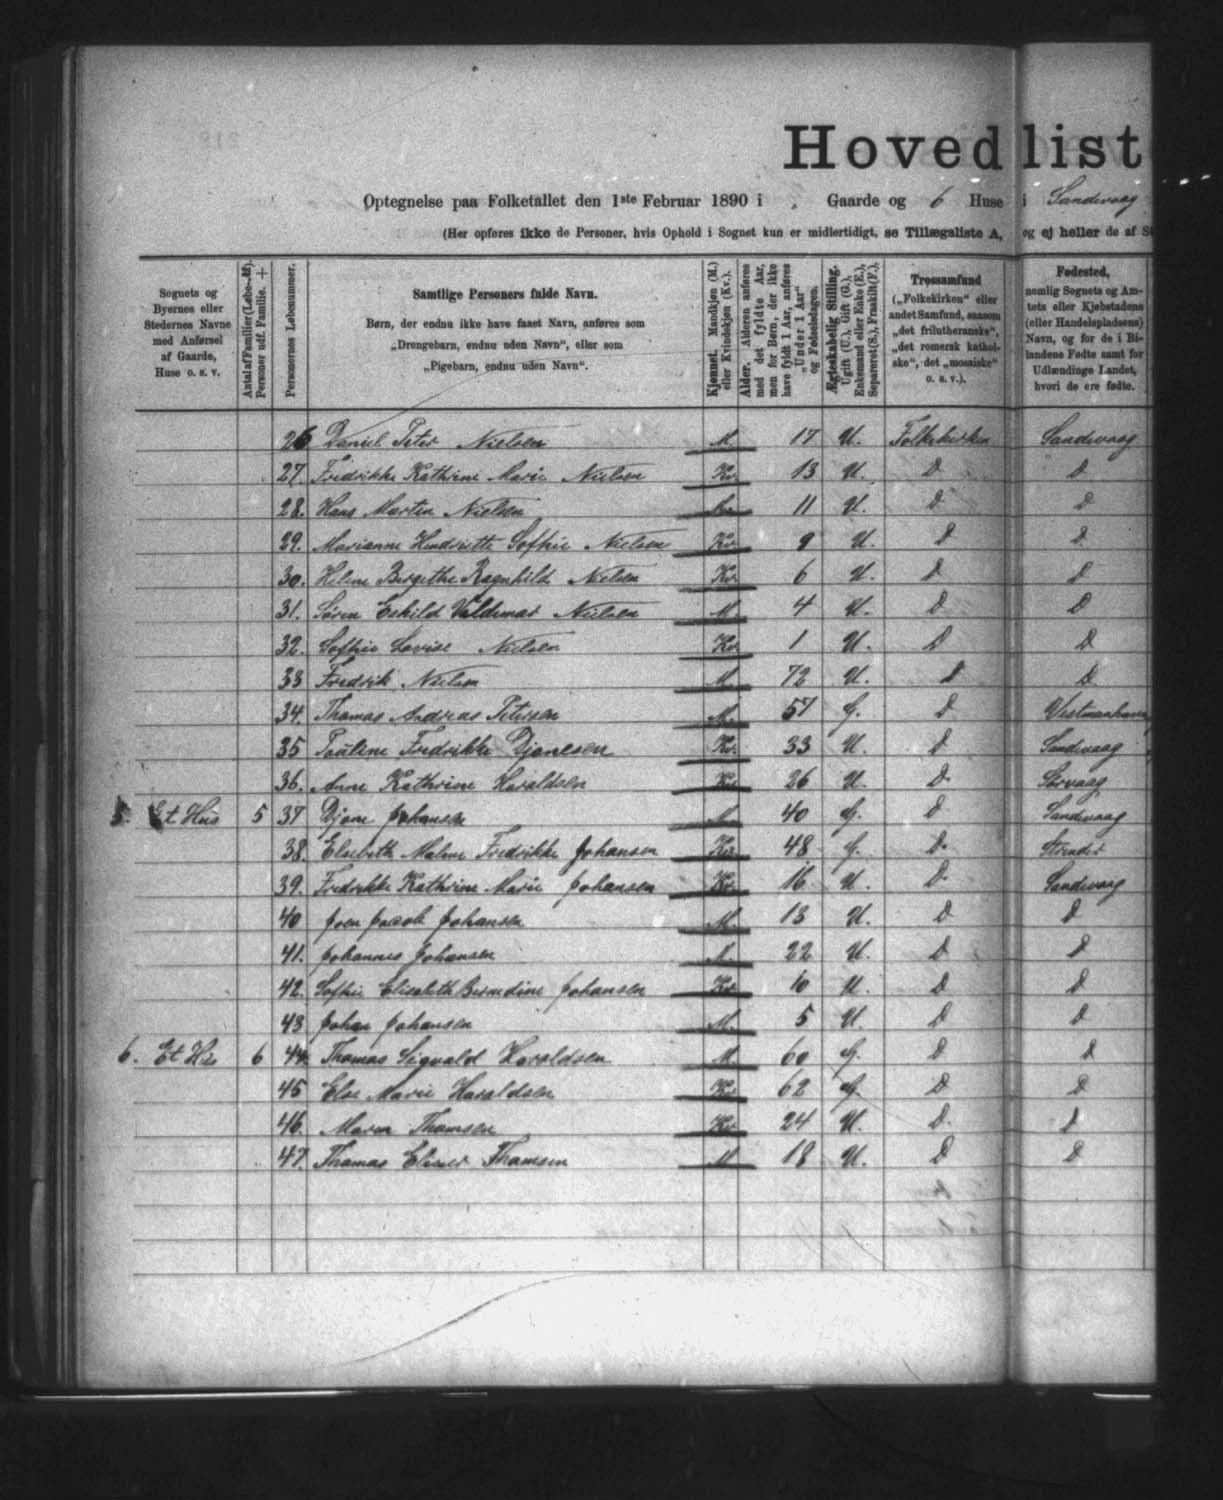 Hovedlist
Optegnelse paa Folketallet den 1ste Februar 1890 i „ Gaarde og 6 Huse i Sandevaag
(Her opføres ikke de Personer, hvis Ophold i Sognet kun er midlertidigt, se Tillægsliste A, og ej heller de af
Sognets og Byernes eller Stedernes Navne med Anførsel af Gaarde, Huse o. s. v.
Antal af Familier (Løbe-№). Personer udf. Familie. +
Personernes Løbenummer.
Samtlige Personers fulde Navn.
Børn, der endnu ikke have faaet Navn, anføres som
„Drengebarn, endnu uden Navn“, eller som
„Pigebarn, endnu uden Navn“.
Kjønnet. Mandkjøn (M.) eller Kvindekjøn (Kv.).
Alder. Alderen anføres med det fyldte Aar, men for Børn, der ikke have fyldt 1 Aar, anføres „Under 1 Aar“ og Fødselsdagen.
Ægteskabelig Stilling. Ugift (U.), Gift (G.), Enkemand eller Enke (E.), Separeret (S.), Fraskilt (F.).
Trossamfund („Folkekirken“ eller andet Samfund, saasom „det frilutheranske“, „det romersk katholske“, det „mosaiske“ o. s. v.).
Fødested, nemlig Sognets og Amtets eller Kjøbstadens (eller Handelspladsens) Navn, og for de i Bilandene Fødte samt for Udlændinge Landet, hvori de ere fødte.
26 Daniel Peter Nielsen M. 17 U. Folkekirken Sandevaag
27. Fredrikke Kathrine Marie Nielsen Kv. 13 U. D D
28. Hans Martin Nielsen 11 U. D D
29. Marianne Hendriette Sofhie Nielsen Kv. 9 U. D D
30. Helene Birgithe Ragnhild Nielsen Kv. 6 U. D D
31. Søren Eskild Valdemar Nielsen M. 4 U. D D
32. Sofhie Lovise Nielsen Kv. 1 U. D D
33 Fredrik Nielsen M. 72 U. D D
34. Thomas Andreas Petersen M. 57 G. D Vestmanhavn
35 Pauline Fredrikke Djonesen Kv. 33 U. D Sandevaag
36. Anne Kathrine Haraldsen Kv. 26 U. D. Sørvaag
5. Et Hus 5 37 Djone Johansen M. 40 G. D Sandevaag
38. Elsebeth Malene Fredrikke Johansen Kv. 48 G. D. Strender
39. Fredrikke Kathrine Marie Johansen Kv. 16 U. D. Sandevaag
40 Joen Jacob Johansen M. 13 U. D D
41. Johannes Johansen M. 22 U. D D
42. Sofhie Elisabeth Berendine Johansen Kv. 10 U. D D
43 Johan Johansen M. 5 U. D D
6. Et Hus 6 44. Thomas Sigvald Haraldsen M. 60 G. D D
45 Else Marie Haraldsen Kv. 62 G. D D
46. Maren Thomsen Kv. 24 U. D. D
47. Thomas Thomsen M 18 U. D D